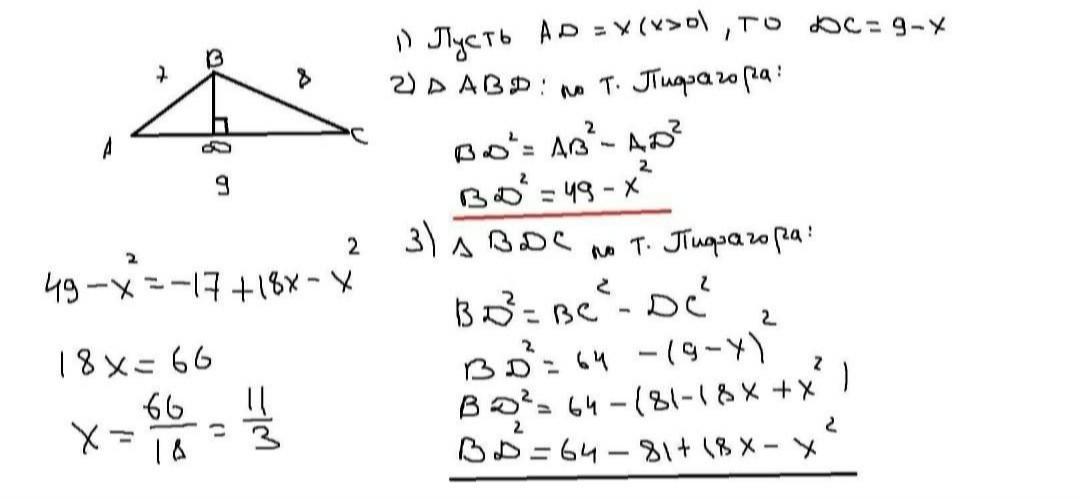 B
7
8
A
D
C
9
1) Пусть AD = x (x>0), то DC = 9-x
2) Δ ABD: по т. Пифагора:
BD² = AB² - AD²
BD² = 49 - x²
3) Δ BDC по т. Пифагора:
BD² = BC² - DC²
BD² = 64 - (9-x)²
BD² = 64 - (81-18x+x²)
BD² = 64 - 81 + 18x - x²
49 - x² = -17 + 18x - x²
18x = 66
x = 66/18 = 11/3